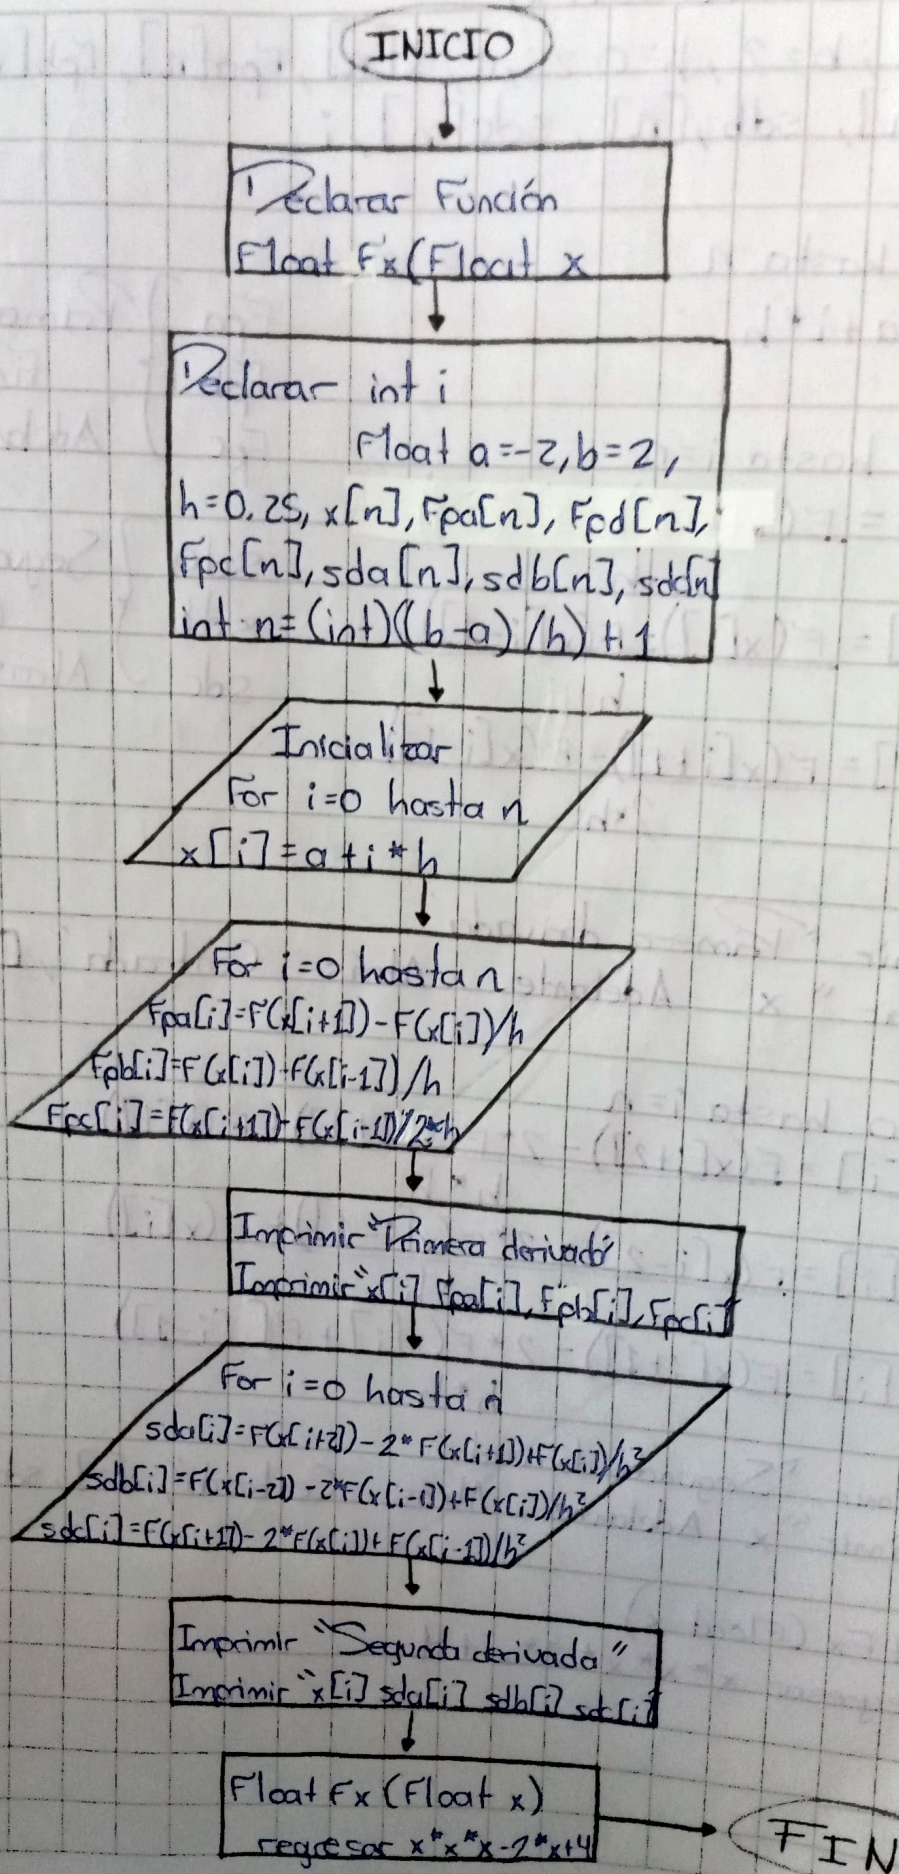 INICIO
Declarar Función
Float Fx(Float x
Declarar int i
Float a=-2, b=2,
h=0.25, x[n], Fpa[n], Fpd[n],
Fpc[n], sda[n], sdb[n], sdc[n]
int n=(int)((b-a)/h)+1
Inicializar
For i=0 hasta n
x[i]=a+i*h
For i=0 hasta n
Fpa[i]=F(x[i+1])-F(x[i])/h
Fpb[i]=F(x[i])-F(x[i-1])/h
Fpc[i]=F(x[i+1])-F(x[i-1])/2*h
Imprimir "Primera derivada"
Imprimir "x[i] Fpa[i], Fpb[i], Fpc[i]
For i=0 hasta n
sda[i]=F(x[i+2])-2*F(x[i+1])+F(x[i])/h²
sdb[i]=F(x[i-2])-2*F(x[i-1])+F(x[i])/h²
sdc[i]=F(x[i+1])-2*F(x[i])+F(x[i-1])/h²
Imprimir "Segunda derivada"
Imprimir "x[i] sda[i] sdb[i] sdc[i]
Float Fx (Float x)
regresar x*x*x-2*x+4
FIN